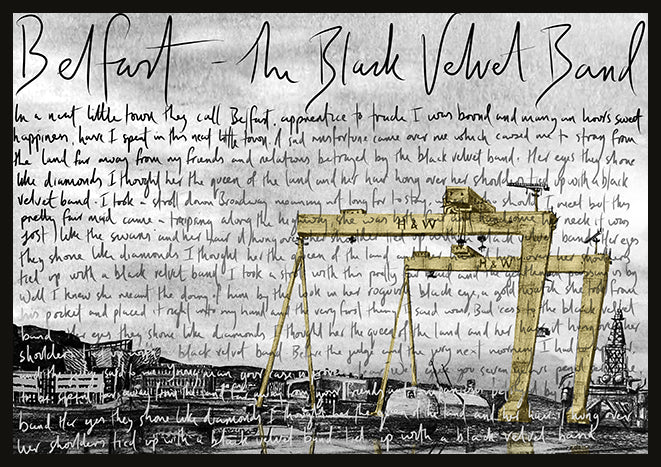 Belfast - The Black Velvet Band
In a neat little town they call Belfast, apprentice to trade I was bound and many an hours sweet
happiness, have I spent in this neat little town. A sad misfortune came over me which caused me to stray from
the land far away from my friends and relations betrayed by the black velvet band. Her eyes they shone
like diamonds I thought her the queen of the land and her hair hung over her shoulder tied up with a black
velvet band. I took a stroll down Broadway meaning not long for to stay. should I meet but this
pretty fair maid came a traipsing along the highway she was handsome her neck it was
just like the swans and her hair it hung over her shoulder band. Her eyes
they shone like diamonds I thought her the queen of the land
tied up with a black velvet band I took a stroll with this pretty and the gentleman passing us by
Well I knew she meant the doing of him by the look in her roguish black eye, a gold watch she took from
his pocket and placed it right into my hand and the very first thing I said was, Bad cess to the black velvet
band. Her eyes they shone like diamonds I thought her the queen of the land and her hair it hung over her
shoulder black velvet band. Before the judge and the very next morning I had
far away from your friends
band Her eyes they shone like diamonds I thought her the queen of the land and her hair it hung over
her shoulders tied up with a black velvet band tied up with a black velvet band
H&W
H&W